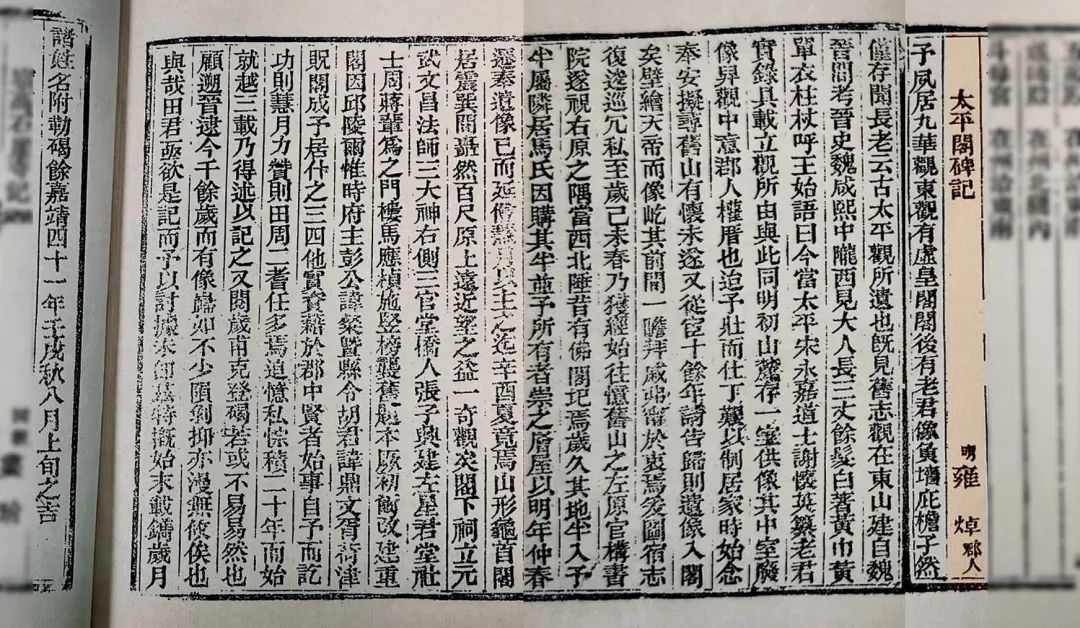 太平閣碑記 明 雍焯 郡人
予夙居九華觀東觀有虛皇閣閣後有老君像負壖庇檐孑然
僅存聞長老云古太平觀所遺也旣見舊志觀在東山建自魏
晉間考晉史魏咸熙中隴西見大人長三丈餘髮白著黃巾黃
單衣柱杖呼王始語曰今當太平宋永嘉道士謝懷英纂老君
實錄具載立觀所由與此同明初山麓存一室供像其中室廢
像舁觀中意郡人權厝也迨予壯而仕丁艱以制居家時始念
奉安擬尋舊山有懷未遂又從宦十餘年請告歸則遺像入閣
矣壁繪天帝而像屹其前間一瞻拜戚弗甯於衷焉爰圖宿志
復逡巡冗私至歲己未春乃獲經始往憶舊山之左原官構書
院遂視右原之隅當西北陲昔有佛閣圮焉歲久其地半入予
半屬隣居馬氏因購其半並予所有者崇之層屋以明年仲春
遷奉遺像已而延僧慧 主之迄辛酉夏竟焉山形龜首閣
居震巽間矗然百尺原上遠近望之益一奇觀矣閣下祠立元
武文昌法師三大神右側三官堂橋人張子興建左星君堂社
士周蔣輩爲之門樓馬應楨施竪榜襲舊題本厥初飭改建重
閣因邱陵爾惟時府主彭公諱粲暨縣令胡君諱鼎文胥 津
貺閣成予居什之三四他實資藉於郡中賢者始事自予而訖
功則慧月力贊則田周二耆任多焉追憶私悰積二十年而始
就越三載乃得述以記之又閱歲甫克登碣若或不易易然也
顧遡晉逮今千餘歲而有像巋如不少頤倒抑亦漫無俟俟也
與哉田君亟欲是記而予以討據 始末載鐫歲月
諸姓名附勒碣餘嘉靖四十一年壬戌秋八月上旬之吉